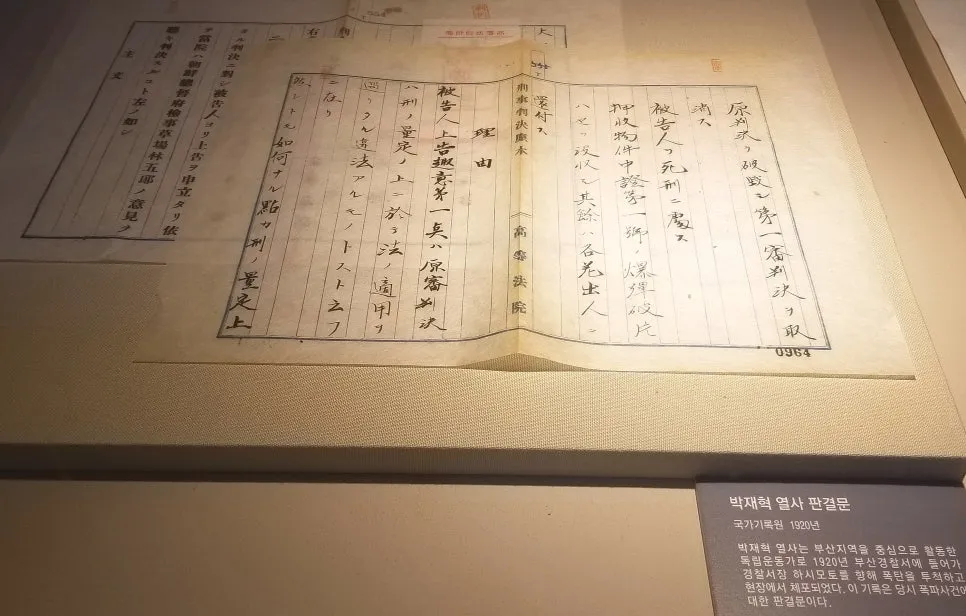 原判決ヲ破毀シ第一審判決ヲ取
消ス
被告人ヲ死刑ニ處ス
押收物件中證第一號ノ爆彈破片
ハ之ヲ沒收シ其餘ハ各差出人ニ
還付ス
刑事判決原本 高等法院
理由
被告人上告趣意第一点ハ原審判決
ハ刑ノ量定ノ上ニ於テ法ノ適用ヲ
誤リタル違法アルモノトスト云フ
ニ在リ
然レトモ如何ナル點カ刑ノ量定上
0964
タル判決ニ對シ被告人ヨリ上告ヲ申立タリ依
テ當院ハ朝鮮總督府檢事草場林五郎ノ意見ヲ
聽キ判決スルコト左ノ如シ
主文
박재혁 열사 판결문
국가기록원 1920년
박재혁 열사는 부산지역을 중심으로 활동한
독립운동가로 1920년 부산경찰서에 들어가
경찰서장 하시모토를 향해 폭탄을 투척하고
현장에서 체포되었다. 이 기록은 당시 폭파사건에
대한 판결문이다.